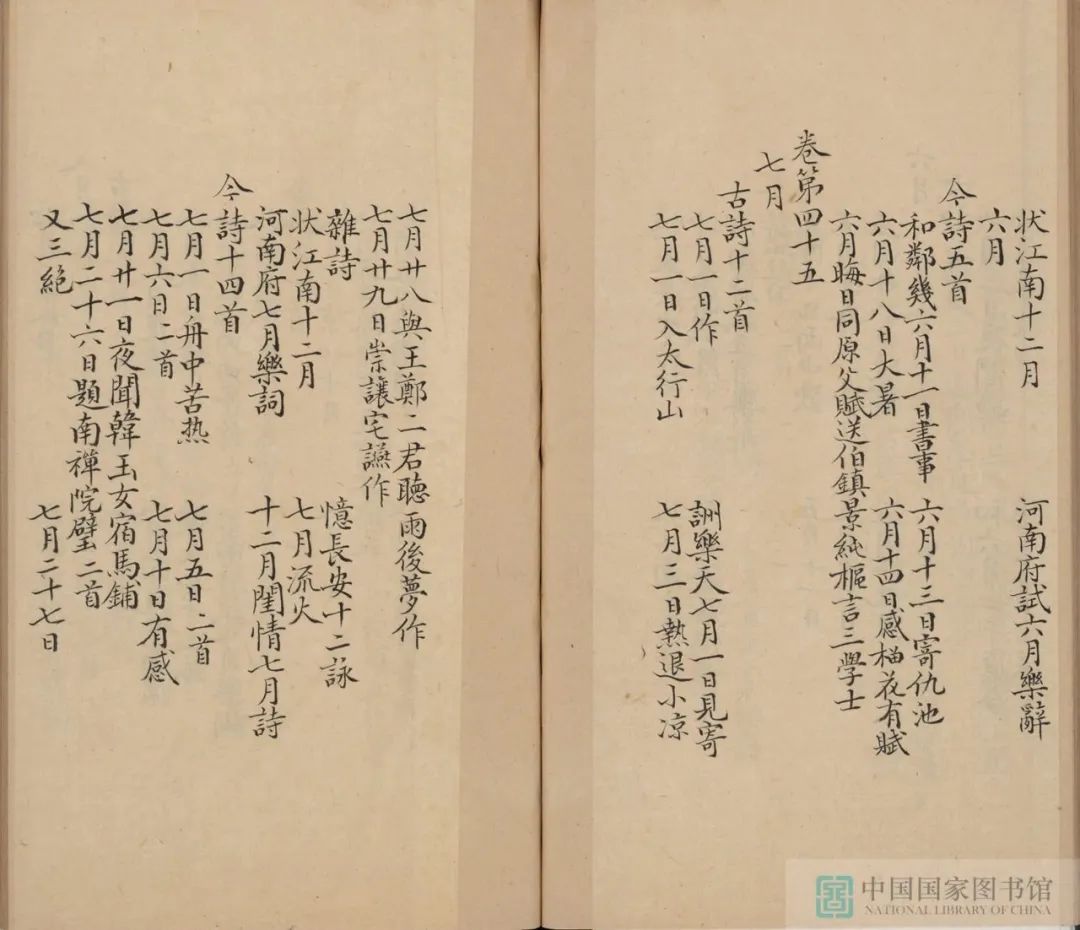 状江南十二月　河南府試六月樂辭
六月
今詩五首
和鄰幾六月十一日書事　六月十三日寄仇池
六月十八日大暑　六月十四日感榴花有賦
六月晦日同原父賦送伯鎮景純樞言三學士
卷第四十五
七月
古詩十二首
七月一日作　詶樂天七月一日見寄
七月一日入太行山　七月三日熱退小凉
七月廿八與王鄭二君聽雨後夢作
七月廿九日崇讓宅讌作
雜詩　憶長安十二詠
状江南十二月　七月流火
河南府七月樂詞　十二月閨情七月詩
今詩十四首
七月一日舟中苦热　七月五日二首
七月六日二首　七月十日有感
七月廿一日夜聞韓玉女宿馬鋪
七月二十六日題南禪院壁二首
又三絕　七月二十七日
中国国家图书馆
NATIONAL LIBRARY OF CHINA